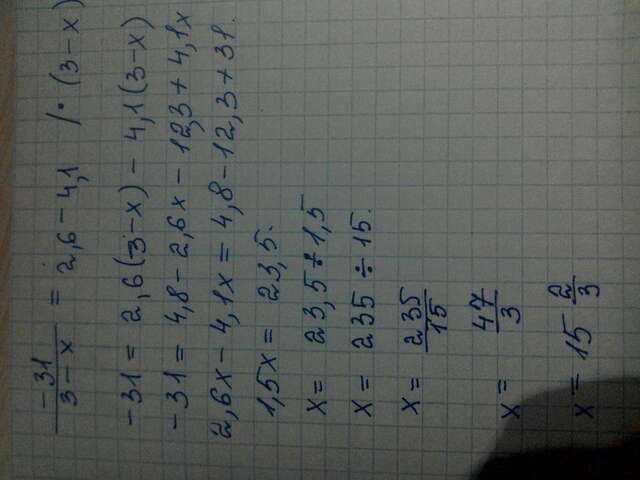 -31/(3-x) = 2,6 - 4,1 /· (3-x)
-31 = 2,6(3-x) - 4,1(3-x)
-31 = 4,8 - 2,6x - 12,3 + 4,1x
2,6x - 4,1x = 4,8 - 12,3 + 31.
1,5x = 23,5.
x = 23,5 ÷ 1,5
x = 235 ÷ 15.
x = 235/15
x = 47/3
x = 15 2/3